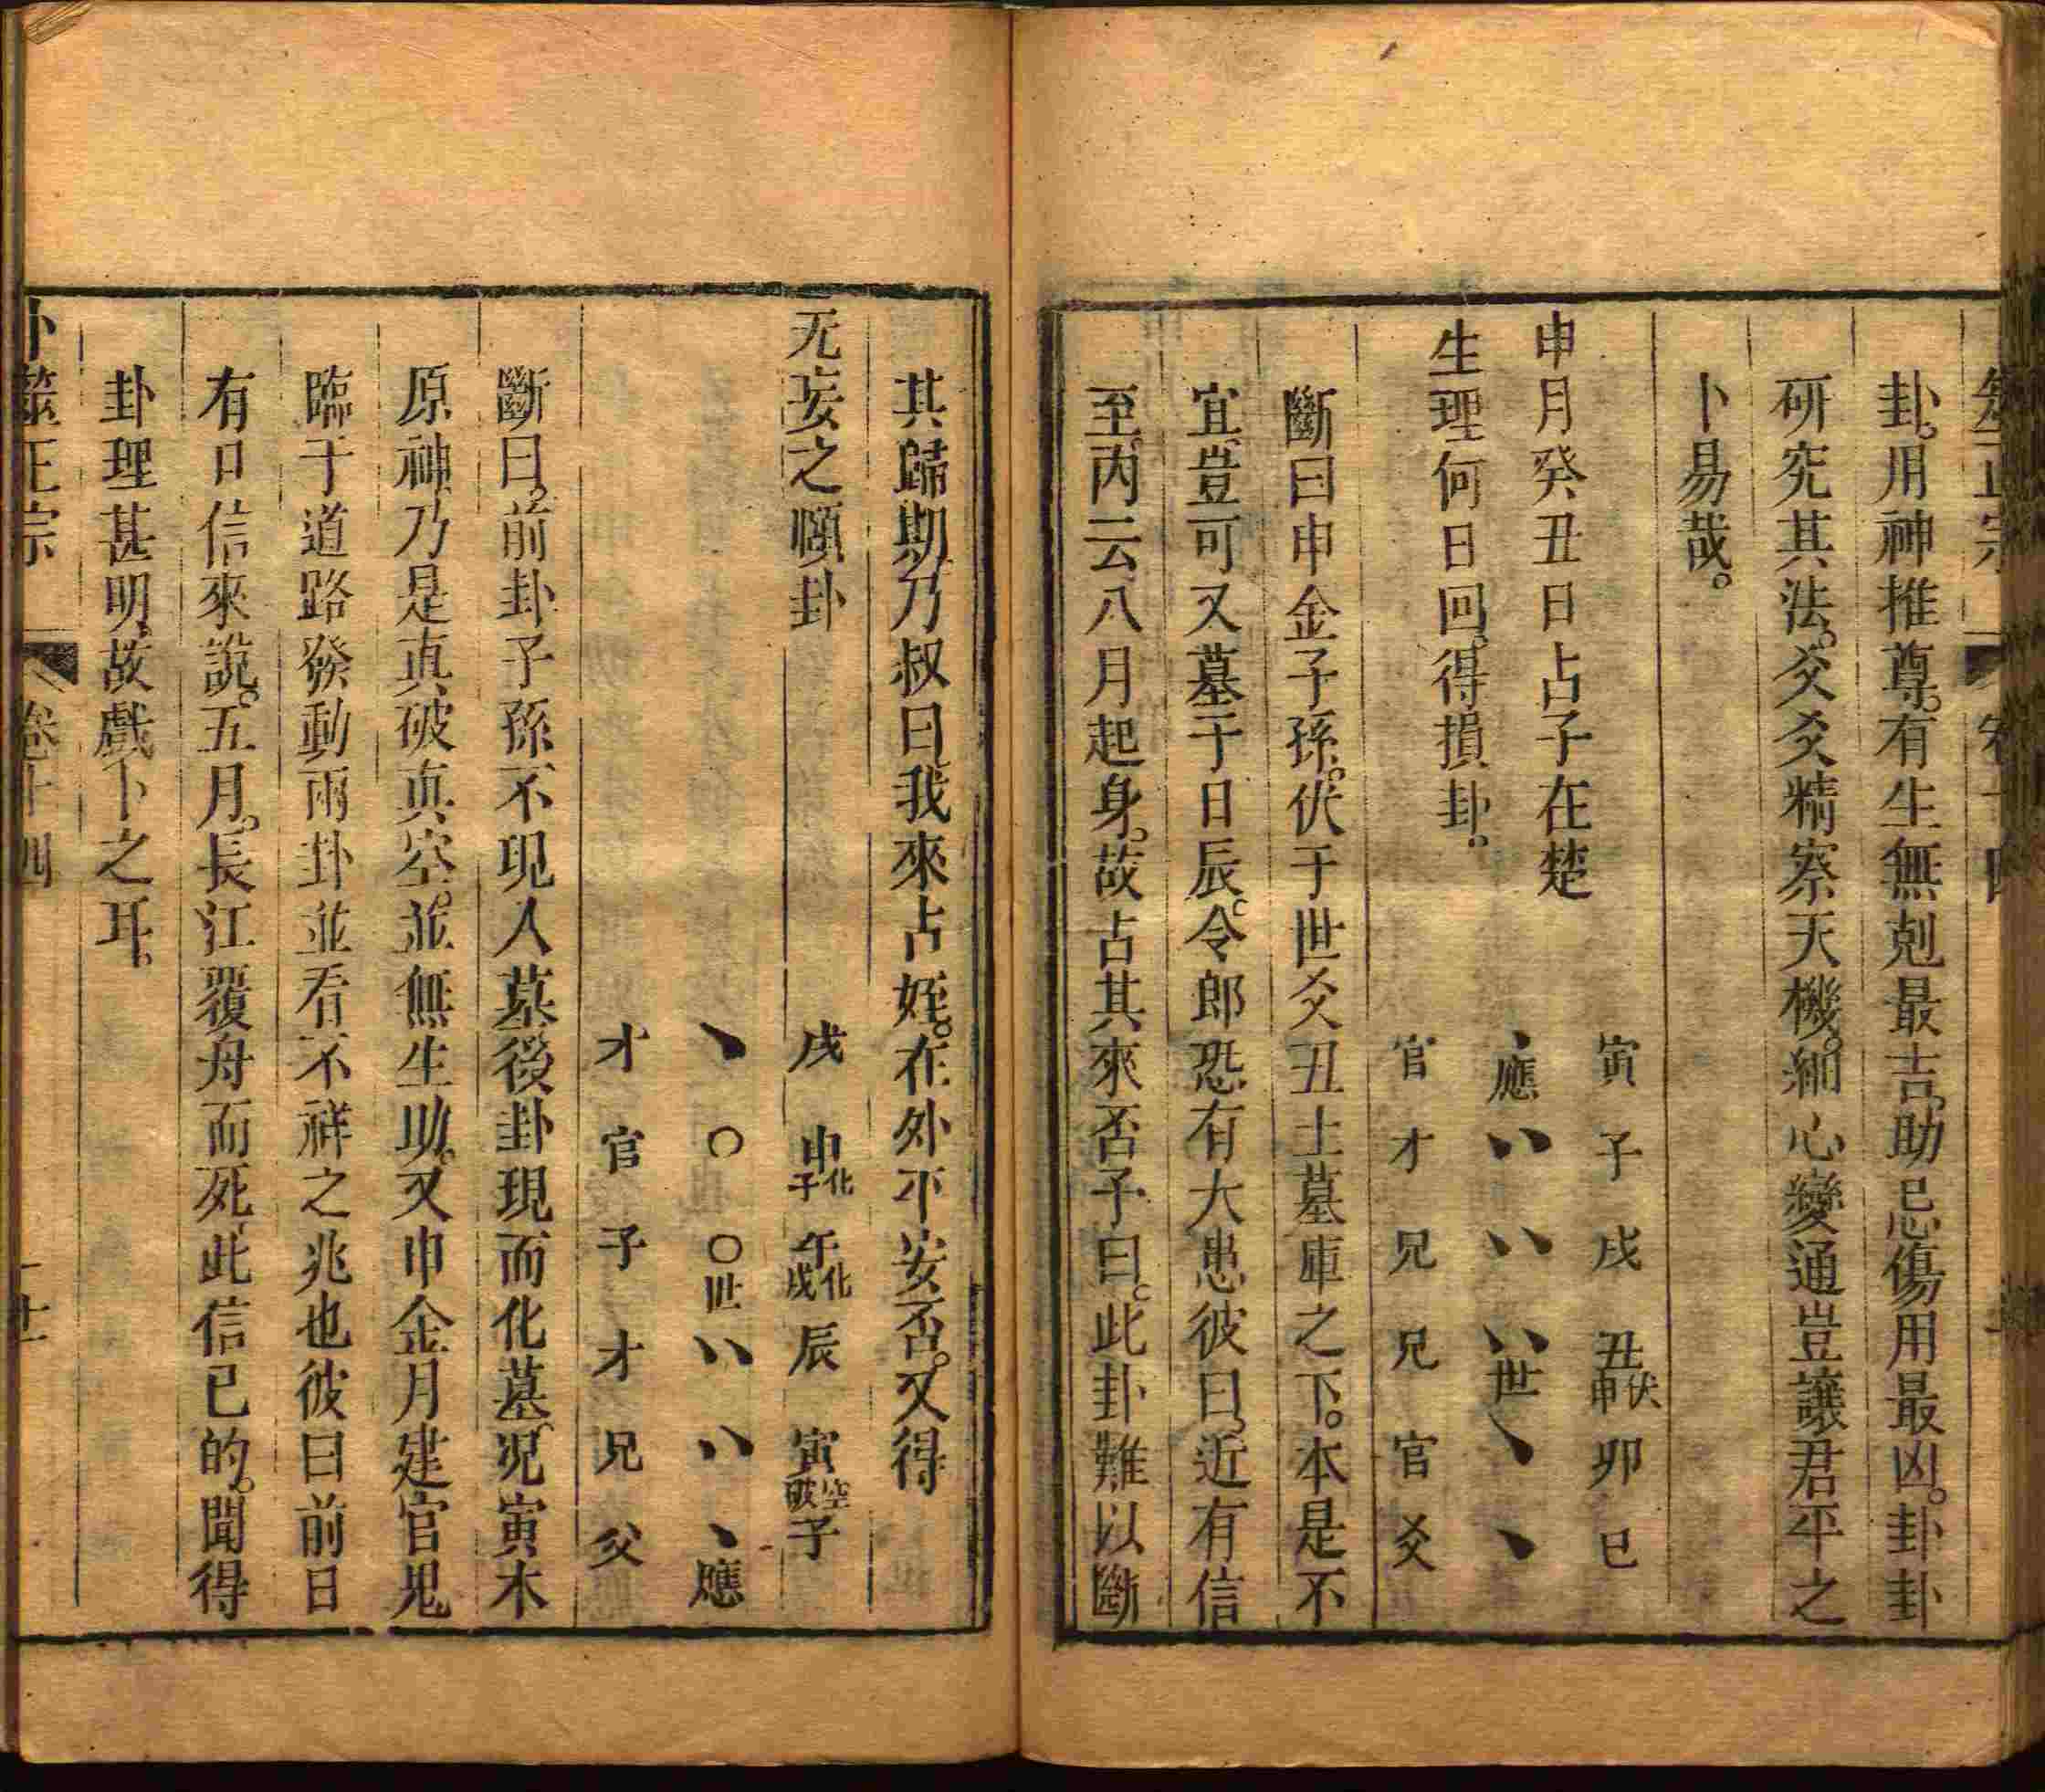 卦。用神推尊。有生無剋最吉。助忌傷用最凶。卦卦
研究其法。爻爻精察天機。細心變通豈讓君平之
卜易哉。
申月癸丑日占子在楚
生理何日回。得損卦。
寅 子 戌 丑伏申 卯 巳
、應 〃 〃 〃世 、 、
官 才 兄 兄 官 爻
斷曰申金子孫。伏于世爻丑土墓庫之下。本是不
宜。豈可又墓于日辰。令郎恐有大患彼曰。近有信
至。丙云八月起身。故占其來否予曰。此卦難以斷
其歸期。乃叔曰我來占姪。在外平安否。又得
无妄之頤卦
戌 申化子 午化戌 辰 寅空破 子
、 〇 〇世 〃 〃 、應
才 官 子 才 兄 父
斷曰。前卦子孫不現入墓。後卦現而化墓。况寅木
原神。乃是真破真空。並無生助。又申金月建官鬼
臨于道路發動兩卦並看不祥之兆也彼曰前日
有口信來說。五月。長江覆舟而死。此信已的。聞得
卦理甚明。故戲卜之耳。
卜筮正宗 卷十四